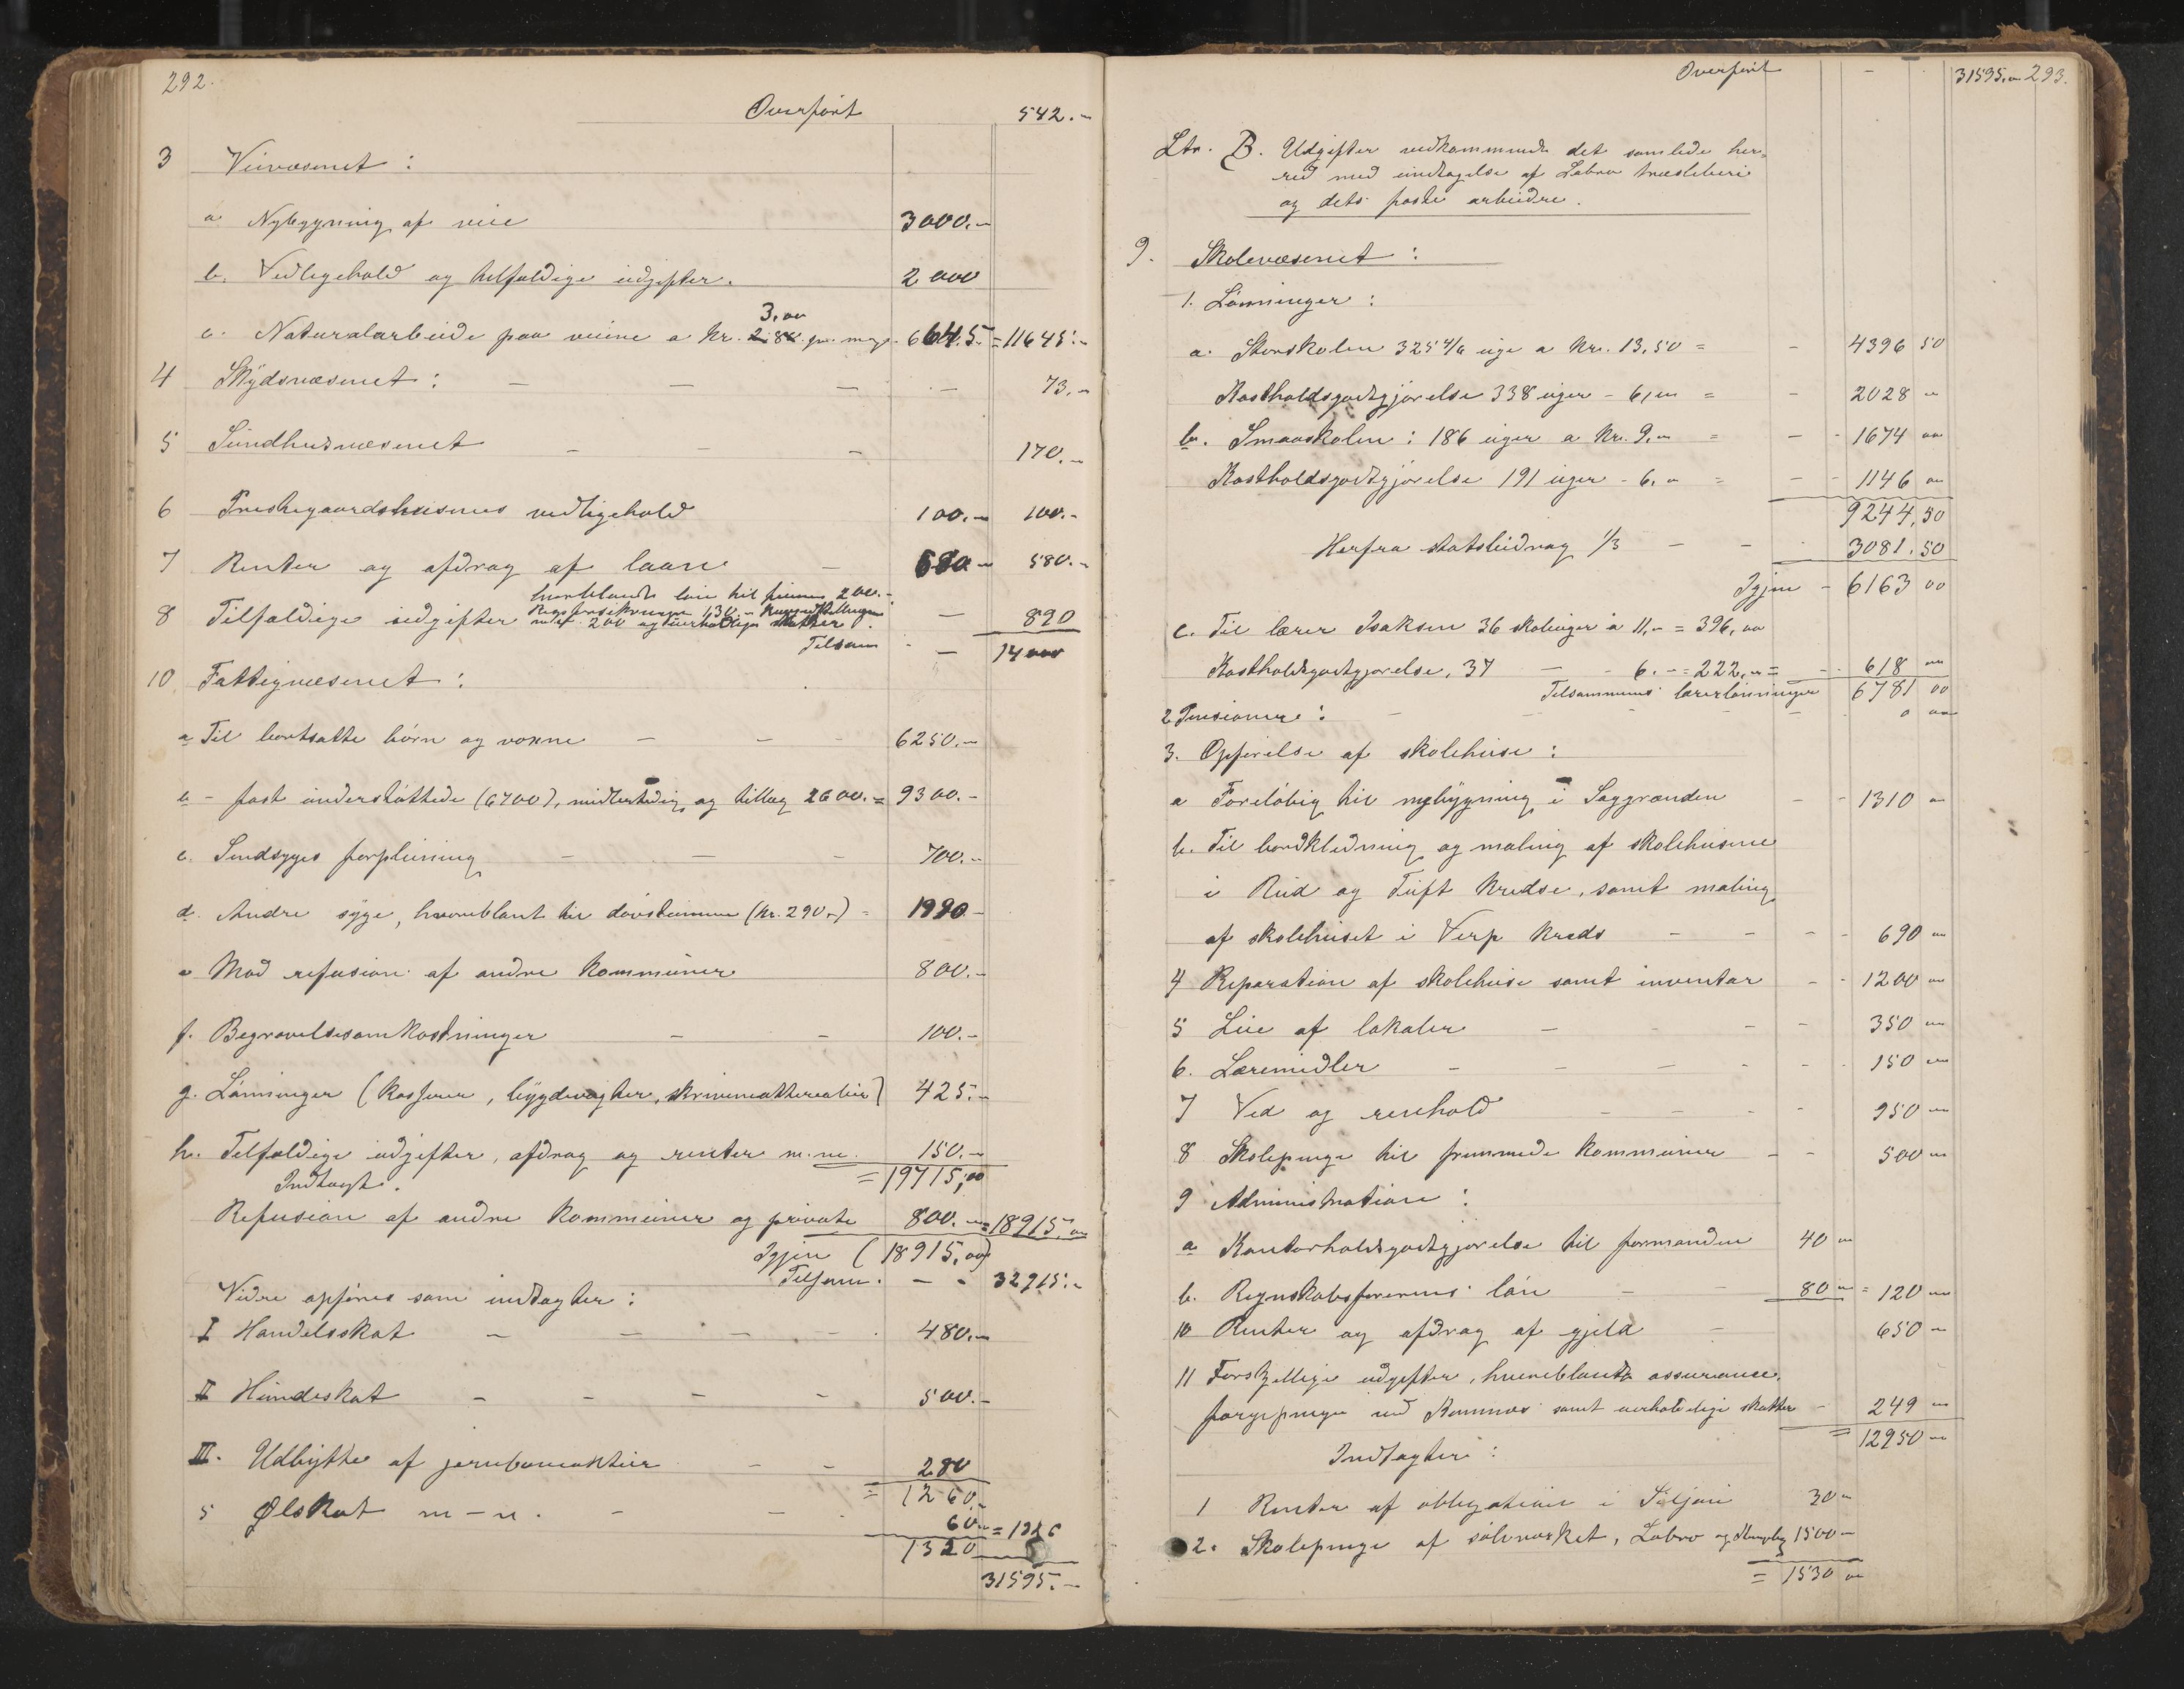 292.
Overført 542.-
3 Veivæsenet:
a Nybygning af veie 3000.-
b. Vedligehold og tilfældige udgifter. 2000
3,00
c. Naturalarbeide paa veiene a kr. 2.88 pr. 6645.- = 11645.-
4 Skydsvæsenet: - - - - 73.-
5 Sundhedsvæsenet - - - 170.-
6 Prestegaardshusenes vedligehold 100.- 100.-
7 Renter og afdrag af laan - 580.- 580.-
hvoriblandt løn til 200.-
8 Tilfældige udgifter 130.- 200 og uerholdelige skatter. - 890
Tilsam - 14000
10 Fattigvæsenet:
a Til bortsatte børn og voxne - - 6250.-
b - fast understøttede (6700), midlertidig og tillæg 2600.- = 9300.-
c. Sindsyges forpleining - - - 700.-
d. Andre syge, hvoriblant til døvstumme (kr. 290.-) = 1990.-
e Mod refusion af andre kommuner 800.-
f. Begravelsesomkostninger - - 100.-
g. Lønninger (kasserer, bygdevagter, skrivematerialier) 425.-
h. Tilfældige udgifter, afdrag og renter m.m. 150.-
Indtægt. = 19715,00
Refusion af andre kommuner og private 800.- = 18915.00
Igjen (18915,00)
Tilsam. - - 32915.-
Videre opføres som indtægter:
I Handelsskat - - - - 480.-
II Hundeskat - - - - 500.-
III. Udbytte af jernbaneaktier - - 280
= 1260.-
5 Ølskat m-n. - - 60.- = 1320
1320
31595.-
Overført - 31595,00 293.
Ltr. B. Udgifter vedkommende det samlede her-
red med undtagelse af Labro træsliberi
og dets faste arbeidere.
9. Skolevæsenet:
1. Lønninger:
a. Storskolen 325 4/6 uge a kr. 13,50 = - 4396 50
Kostholdsgodtgjørelse 338 uger - 6,00 = - 2028 00
b. Smaaskolen: 186 uger a kr. 9,00 = - - 1674 00
Kostholdsgodtgjørelse 191 uger - 6,00 = - - 1146 00
9244,50
Herfra statsbidrag 1/3 - - - 3081.50
Igjen - 6163 00
c. Til lærer Isaksen 36 skoleuger a 11,- = 396,00
Kostholdsgodtgjørelse, 37 - - 6.- = 222,00 = - - 618 00
Tilsammens lærerlønninger 6781 00
2 Pensioner: - - - - - 0 00
3. Opførelse af skolehuse:
a Foreløbig til nybygning i Saggrænden - - 1310 00
b. Til bordklædning og maling af skolehusene
i Rud og Tuft kredse, samt maling
af skolehuset i Verp kreds - - - - 690 00
4 Reparation af skolehuse samt inventar - - 1200 00
5 Leie af lokaler - - - - 350 00
6. Læremidler - - - - - - 150 00
7 Ved og renhold - - - - 950 00
8 Skolepenge til fremmede kommuner - - 500 00
9 Administration:
a Kontorholdsgodtgjørelse til formanden 40 00
b. Regnskabsførerens løn - - 80 00 = 120 00
10 Renter og afdrag af gjeld - 650 -
11 Forskjellige udgifter, hvoriblandt assurance,
ved samt uerholdelige skatter - 249 00
= 12950 00
Indtægter:
1 Renter af obligation i 30 00
2. Skolepenge af sølvverket, Labro og 1500 -
= 1530 00